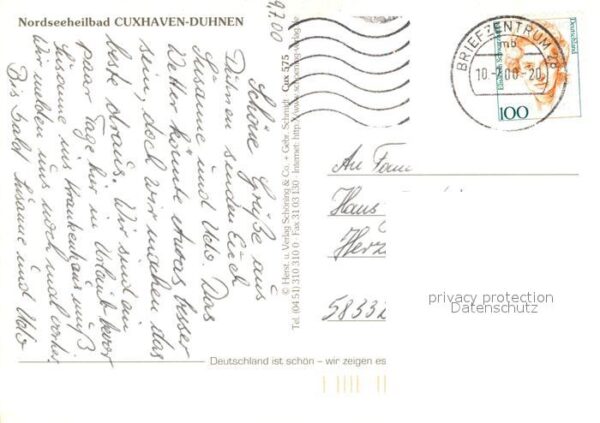 Nordseeheilbad CUXHAVEN-DUHNEN
9.7.00
Schöne Grüße aus
Duhnen senden Euch
Susanne und Udo. Das
Wetter könnte etwas besser
sein, doch wir machen das
beste draus. Wir sind ein
paar Tage hier in Urlaub bevor
Susanne ins Krankenhaus muß
Wir melden uns noch mal vorher.
Bis bald Susanne und Udo
© Herst. u. Verlag Schöning & Co. + Gebr. Schmidt Cux 275
Tel. (04 51) 310 310 0 · Fax 31 03 130 · Internet: http://www.schoening-verlag.de
BRIEFZENTRUM 28
mb
10.-7.00-20
Deutschland
100
An Fam
Hans
Herz
5833
privacy protection
Datenschutz
Deutschland ist schön – wir zeigen es